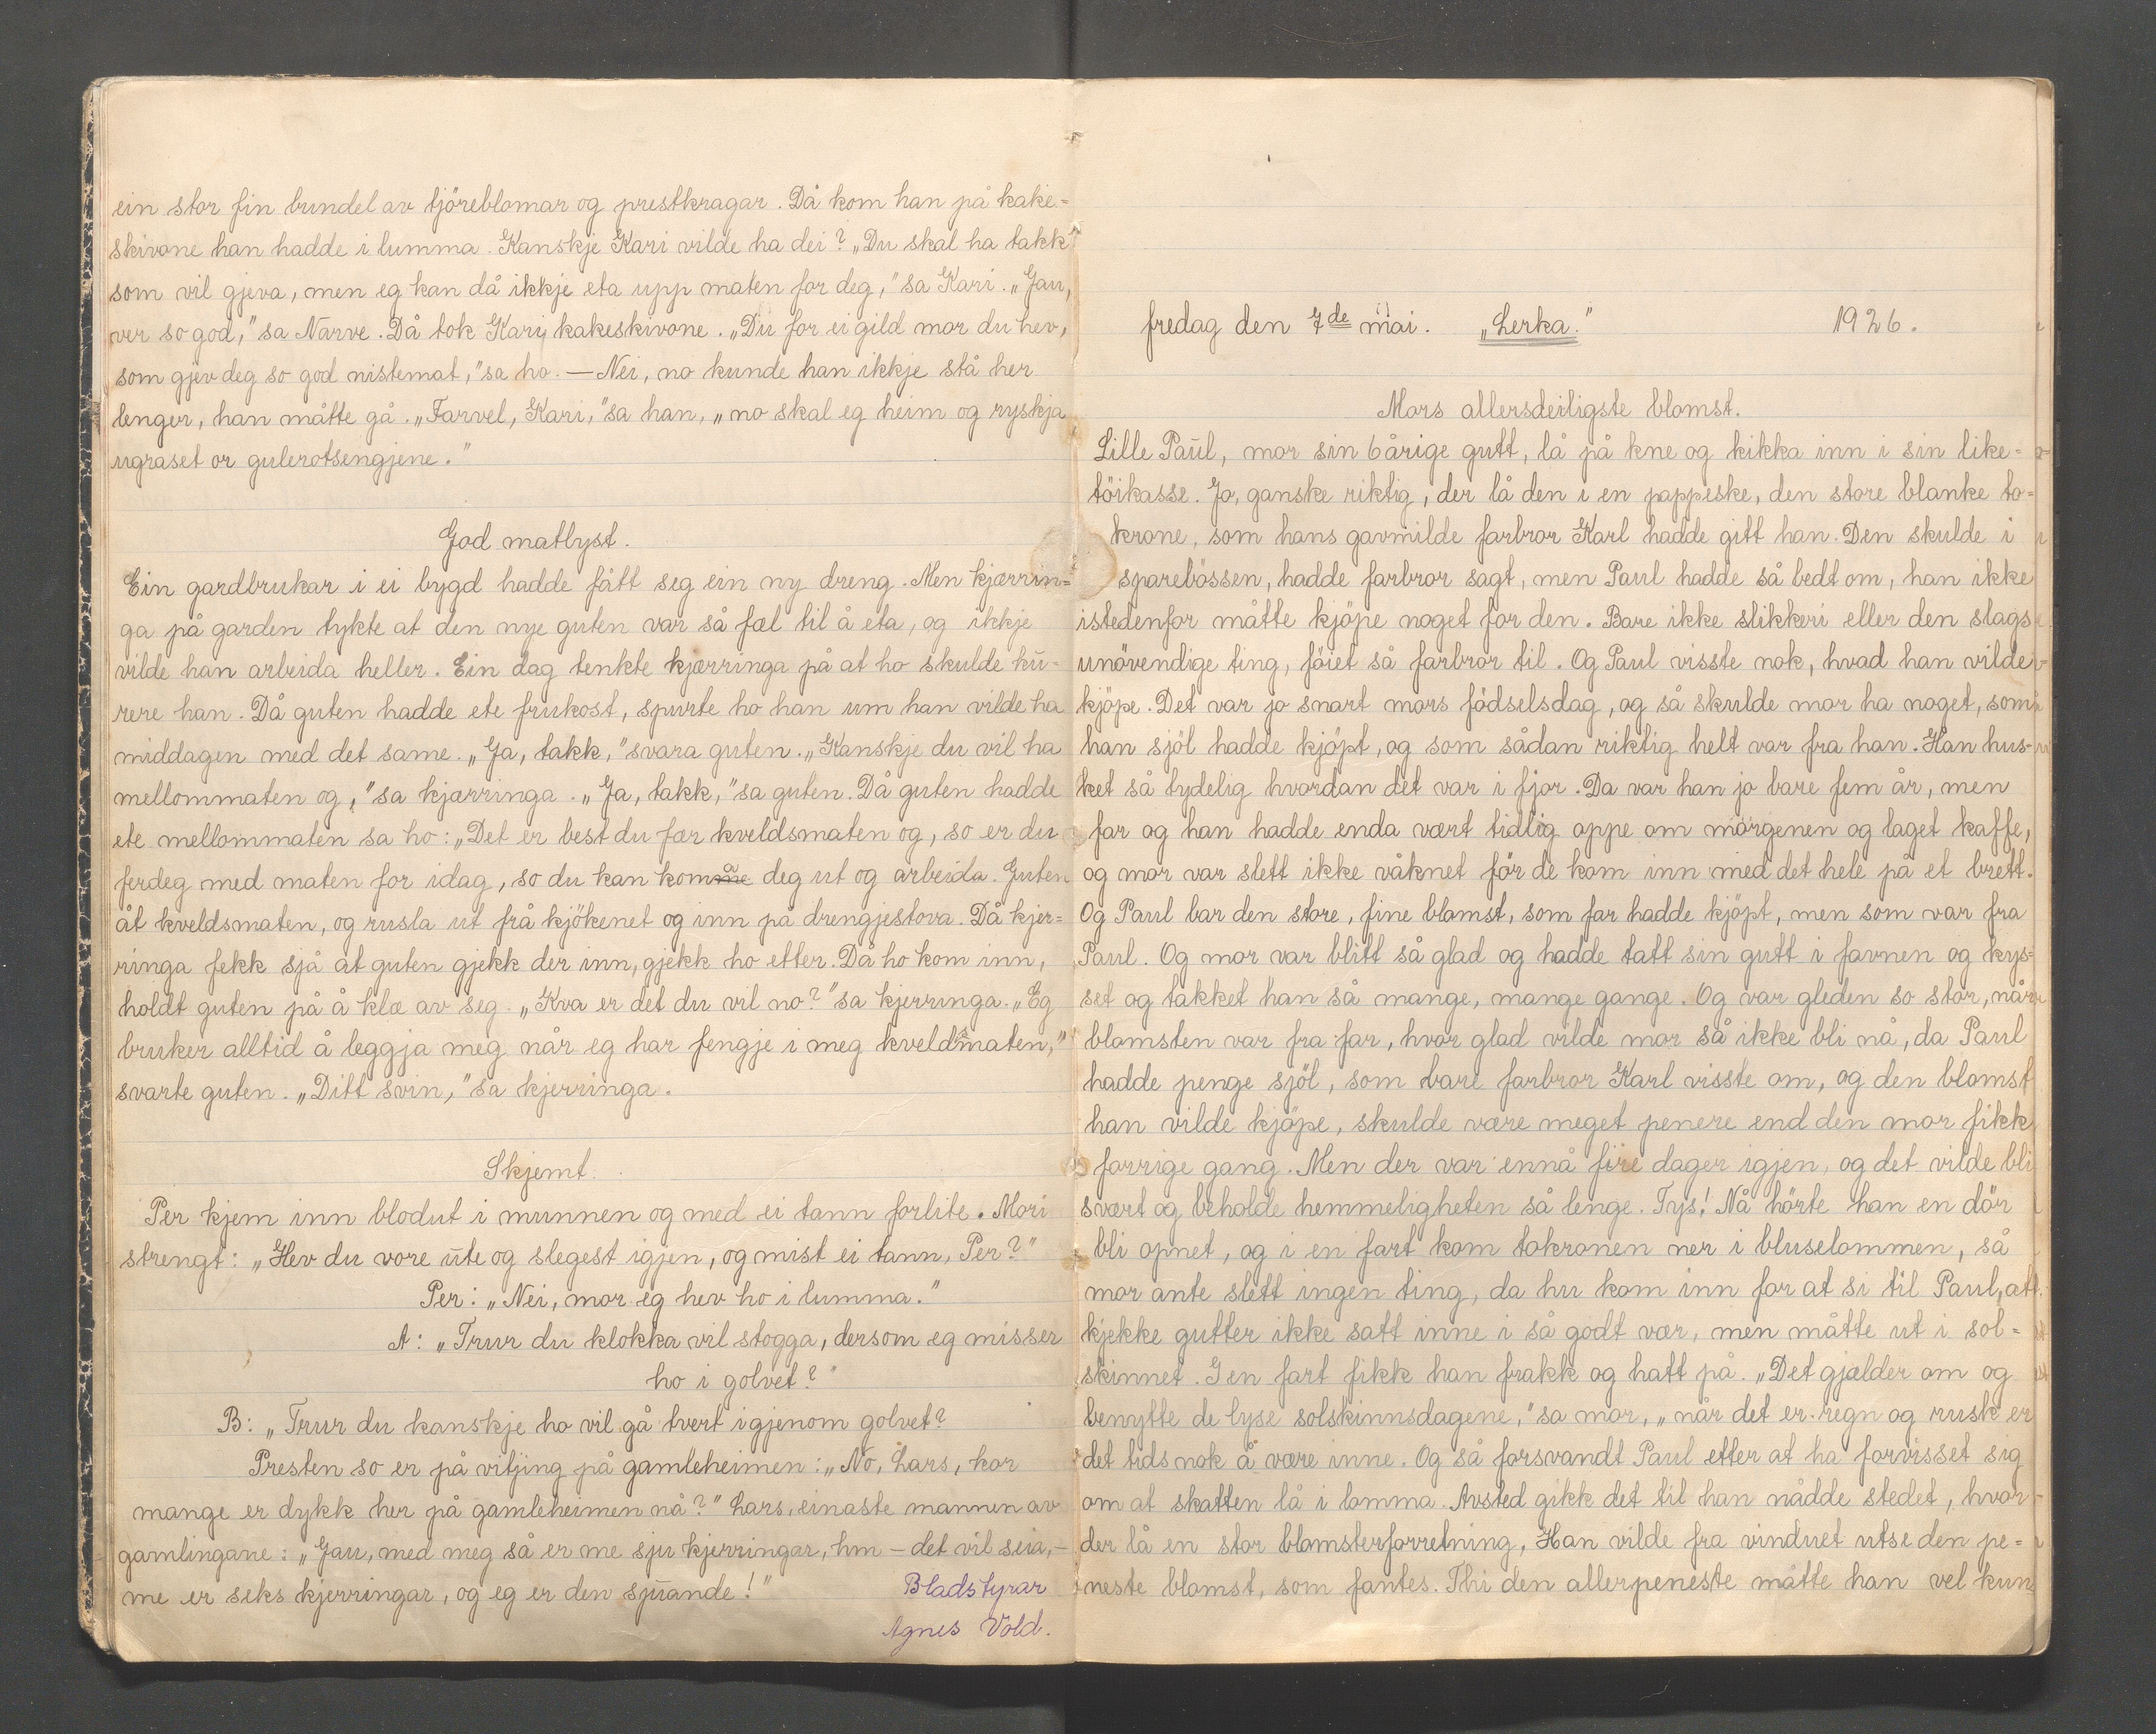 ein stor fin bundel av tjöreblomar og prestkragar. Då kom han på kake=
skivone han hadde i lumma. Kanskje Kari vilde ha dei? „Du skal ha takk
som vil gjeva, men eg kan då ikkje eta upp maten for deg," sa Kari. „Jau,
ver so god," sa Narve. Då tok Kari kakeskivone. „Du for ei gild mor du hev,
som gjev deg so god nistemat," sa ho. — Nei, no kunde han ikkje stå her
lenger, han måtte gå. „Farvel, Kari," sa han, „no skal eg heim og ryskja
ugraset or gulerotsengjene."
God matlyst.
Ein gardbrukar i ei bygd hadde fått seg ein ny dreng. Men kjærrin=
ga på garden tykte at den nye guten var så fæl til å eta, og ikkje
vilde han arbeida heller. Ein dag tenkte kjærringa på at ho skulde ku=
rere han. Då guten hadde ete frukost, spurte ho han um han vilde ha
middagen med det same. „Ja, takk," svara guten. „Kanskje du vil ha
mellommaten og," sa kjærringa. „Ja, takk," sa guten. Då guten hadde
ete mellommaten sa ho: „Det er best du fær kveldsmaten og, so er du
ferdeg med maten for idag, so du kan koma deg ut og arbeida. Guten
åt kveldsmaten, og rusla ut frå kjökenet og inn på drengjestova. Då kjer=
ringa fekk sjå at guten gjekk der inn, gjekk ho etter. Då ho kom inn,
holdt guten på å klæ av seg. „Kva er det du vil no?" sa kjerringa. „Eg
bruker alltid å leggja meg når eg har fengje i meg kveldsmaten,"
svarte guten. „Ditt svin," sa kjerringa.
Skjemt.
Per kjem inn blodut i munnen og med ei tann forlite. Mori
strengt: „Hev du vore ute og slegest igjen, og mist ei tann, Per?"
Per: „Nei, mor eg hev ho i lumma."
A: „Trur du klokka vil stogga, dersom eg misser
ho i golvet?"
B: „Trur du kanskje ho vil gå tvert igjenom golvet?
Presten so er på vitjing på gamleheimen: „No, Lars, kor
mange er dykk her på gamleheimen nå?" Lars, einaste mannen av
gamlingane: „Jau, med meg så er me sju kjerringar, hm — det vil seia, —
me er seks kjerringar, og eg er den sjuande!"
Bladstyrar
Agnes Vold.
fredag den 7de mai. „Lerka." 1926.
Mors allersdeiligste blomst.
Lille Paul, mor sin 6årige gutt, lå på kne og kikka inn i sin like=
töikasse. Jo, ganske riktig, der lå den i en pappeske, den store blanke to=
krone, som hans gavmilde farbror Karl hadde gitt han. Den skulde i
sparebössen, hadde farbror sagt, men Paul hadde så bedt om, han ikke
istedenfor måtte kjöpe noget for den. Bare ikke slikkeri eller den slags
unövendige ting, föiet så farbror til. Og Paul visste nok, hvad han vilde
kjöpe. Det var jo snart mors födselsdag, og så skulde mor ha noget, som
han sjöl hadde kjöpt, og som sådan riktig helt var fra han. Han hus-
ket så tydelig hvordan det var i fjor. Da var han jo bare fem år, men
far og han hadde enda vært tidlig oppe om morgenen og laget kaffe,
og mor var slett ikke våknet för de kom inn med det hele på et brett.
Og Paul bar den store, fine blomst, som far hadde kjöpt, men som var fra
Paul. Og mor var blitt så glad og hadde tatt sin gutt i favnen og kys=
set og takket han så mange, mange gange. Og var gleden so stor, når
blomsten var fra far, hvor glad vilde mor så ikke bli nå, da Paul
hadde penge sjöl, som bare farbror Karl visste om, og den blomst
han vilde kjöpe, skulde være meget penere end den mor fikk
forrige gang. Men der var ennå fire dager igjen, og det vilde bli
svært og beholde hemmeligheten så lenge. Tys! Nå hörte han en dör
bli opnet, og i en fart kom tokronen ner i bluselommen, så
mor ante slett ingen ting, da hu kom inn for at si til Paul, at
kjekke gutter ikke satt inne i så godt vær, men måtte ut i sol=
skinnet. I en fart fikk han frakk og hatt på. „Det gjælder om og
benytte de lyse solskinnsdagene," sa mor, „når det er regn og rusk er
det tids nok å være inne. Og så forsvandt Paul etter at ha forvisset sig
om at skatten lå i lomma. Avsted gikk det til han nådde stedet, hvor
der lå en stor blomsterforretning, Han vilde fra vinduet utse den pe=
neste blomst, som fantes. Thi den allerpeneste måtte han vel kun